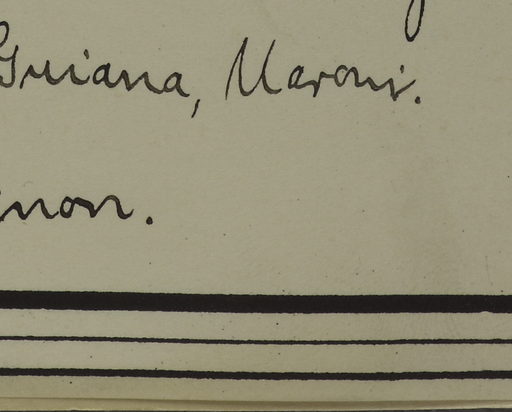 Guiana, Maroni.